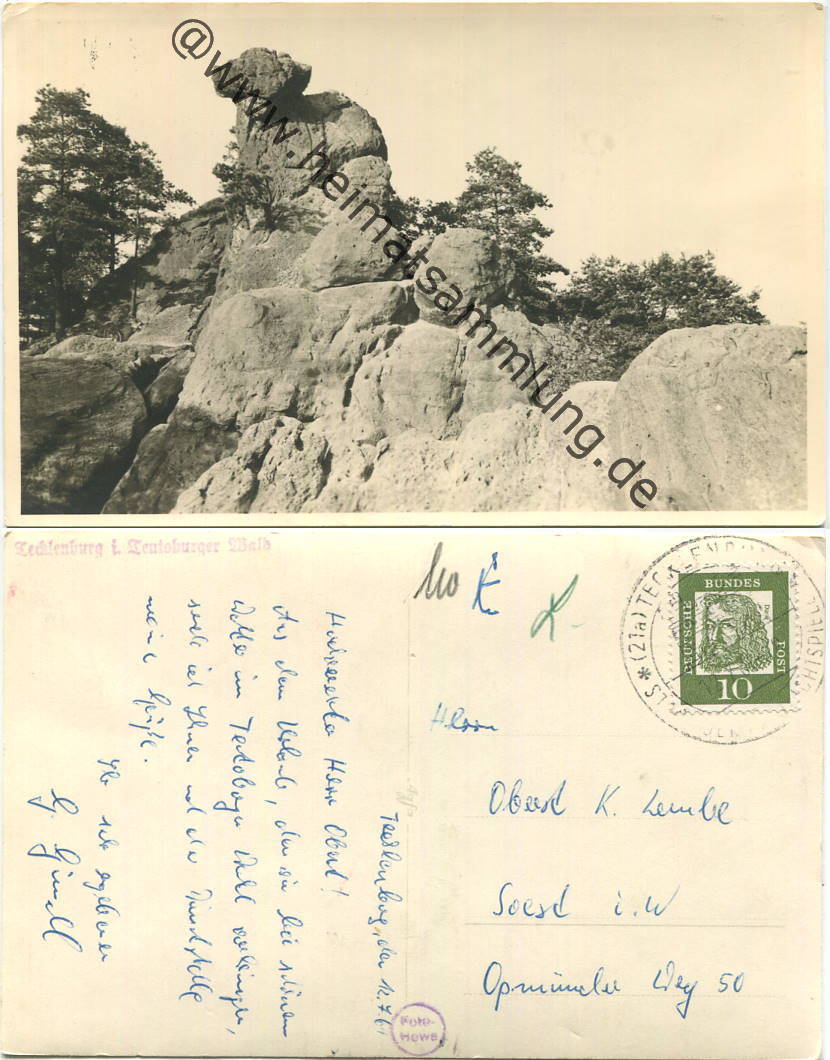 @www.heimatsammlung.de
Tecklenburg i. Teutoburger Wald
Tecklenburg, den 12.7.61
Hochverehrter Herr Oberst!
Aus dem Urlaub, den wir bei schönem
Wetter im Teutoburger Wald verbringen,
sende ich Ihnen und der Dienststelle
meine Grüße.
Ihr sehr ergebener
G.
Foto-
Howe
K.
DEUTSCHE
BUNDES
POST
10
* (21a) TECKLENBURG
Herrn
Oberst K. Lembke
Soest i. W
Opmünder Weg 50